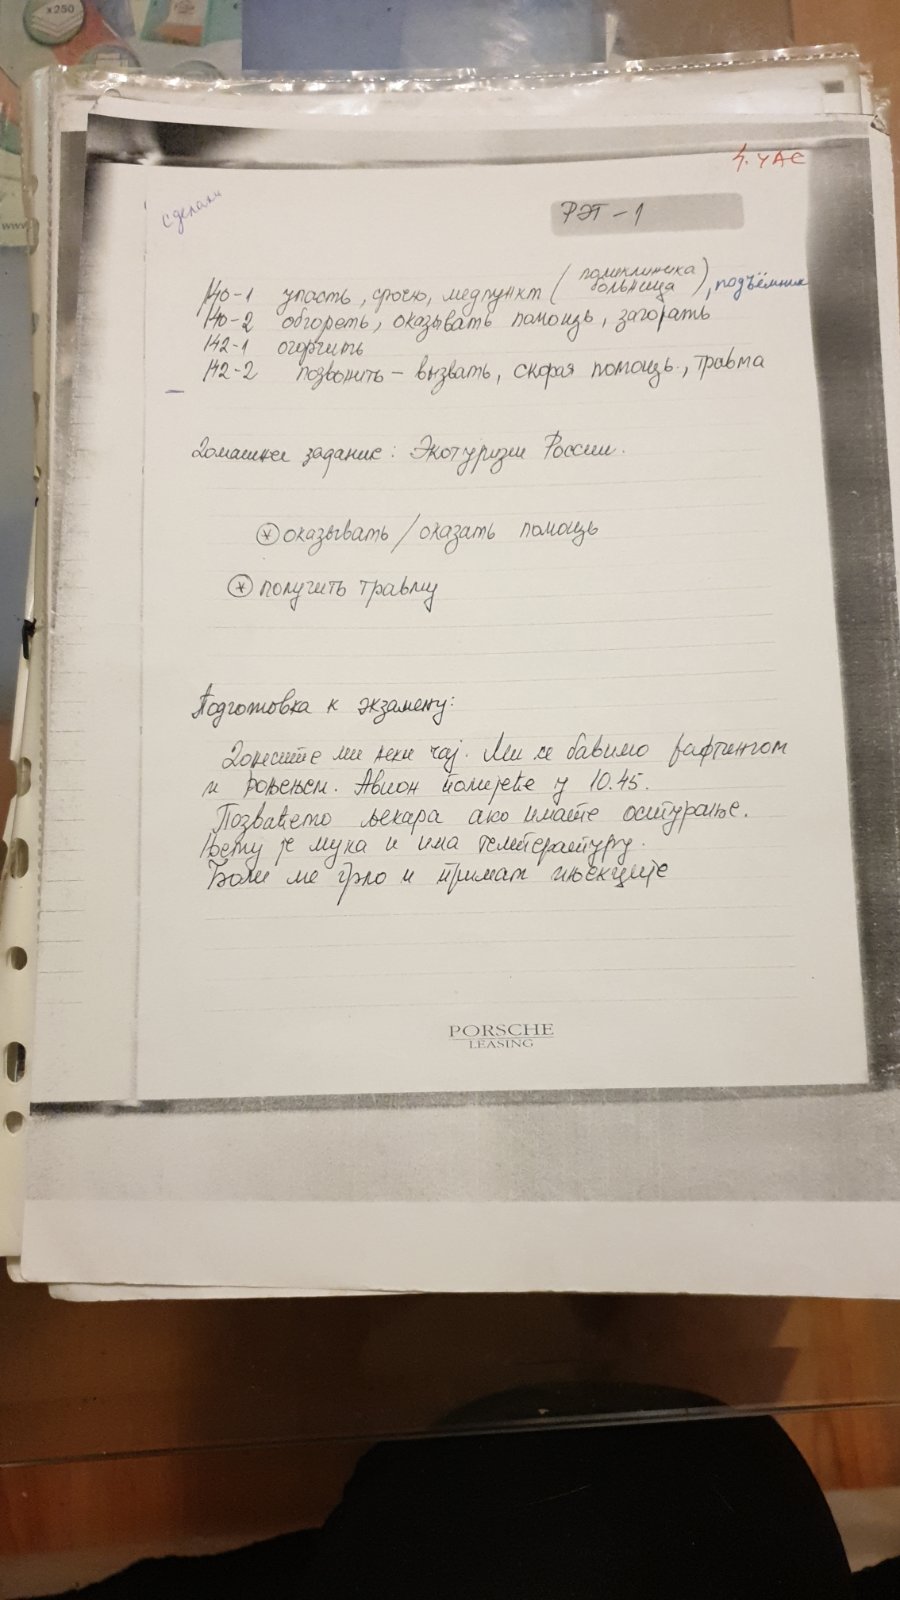 x250
www
4. ЧАС
сделали
РЭТ-1
140-1 упасть, срочно, медпункт (поликлиника больница), подъёмник
140-2 обгореть, оказывать помощь, загорать
142-1 огорчить
142-2 позвонить - вызвать, скорая помощь, травма
Домашнее задание: Экотуризм России.
* оказывать / оказать помощь
* получить травму
Подготовка к экзамену:
Донесите ми неки чај. Ми се бавимо рафтингом
и роњењем. Авион полијеће у 10.45.
Позваћемо љекара ако имате осигурање.
Њему је мука и има температуру.
Боли ме грло и примам инјекције
PORSCHE
LEASING